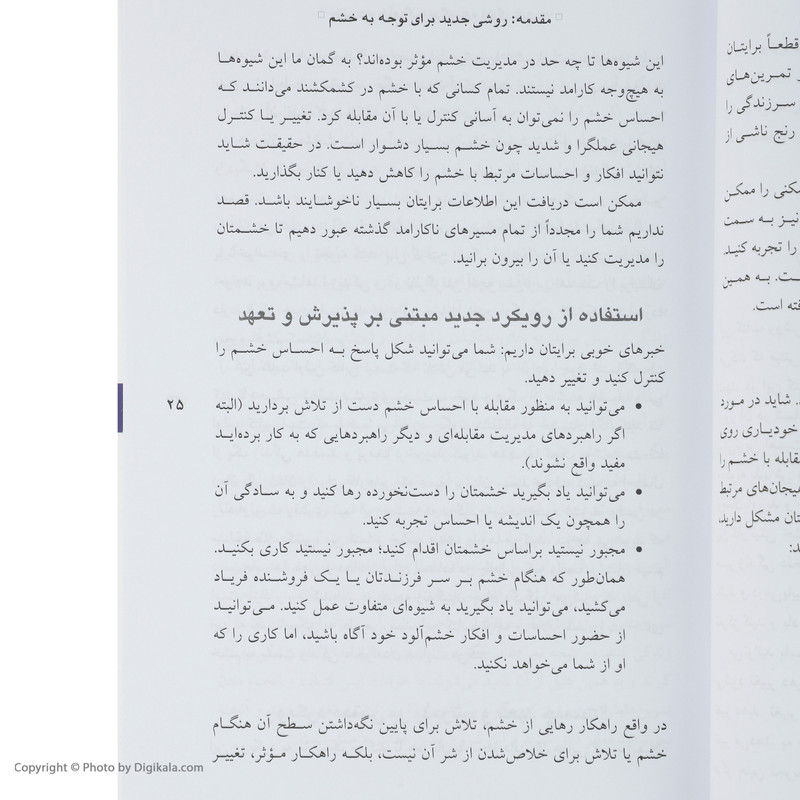 مقدمه: روشی جدید برای توجه به خشم
این شیوه‌ها تا چه حد در مدیریت خشم مؤثر بوده‌اند؟ به گمان ما این شیوه‌ها
به هیچ‌وجه کارامد نیستند. تمام کسانی که با خشم در کشمکشند می‌دانند که
احساس خشم را نمی‌توان به آسانی کنترل یا با آن مقابله کرد. تغییر یا کنترل
هیجانی عملگرا و شدید چون خشم بسیار دشوار است. در حقیقت شاید
نتوانید افکار و احساسات مرتبط با خشم را کاهش دهید یا کنار بگذارید.
ممکن است دریافت این اطلاعات برایتان بسیار ناخوشایند باشد. قصد
نداریم شما را مجدداً از تمام مسیرهای ناکارامد گذشته عبور دهیم تا خشمتان
را مدیریت کنید یا آن را بیرون برانید.
استفاده از رویکرد جدید مبتنی بر پذیرش و تعهد
خبرهای خوبی برایتان داریم: شما می‌توانید شکل پاسخ به احساس خشم را
کنترل کنید و تغییر دهید.
• می‌توانید به منظور مقابله با احساس خشم دست از تلاش بردارید (البته
اگر راهبردهای مدیریت مقابله‌ای و دیگر راهبردهایی که به کار برده‌اید
مفید واقع نشوند).
• می‌توانید یاد بگیرید خشمتان را دست‌نخورده رها کنید و به سادگی آن
را همچون یک اندیشه یا احساس تجربه کنید.
• مجبور نیستید براساس خشمتان اقدام کنید؛ مجبور نیستید کاری بکنید.
همان‌طور که هنگام خشم بر سر فرزندتان یا یک فروشنده فریاد
می‌کشید، می‌توانید یاد بگیرید به شیوه‌ای متفاوت عمل کنید. می‌توانید
از حضور احساسات و افکار خشم‌آلود خود آگاه باشید، اما کاری را که
او از شما می‌خواهد نکنید.
در واقع راهکار رهایی از خشم، تلاش برای پایین نگه‌داشتن سطح آن هنگام
خشم یا تلاش برای خلاص‌شدن از شر آن نیست، بلکه راهکار مؤثر، تغییر
۲۵
قطعاً برایتان
تمرین‌های
سرزندگی را
رنج ناشی از
را ممکن
نیز به سمت
را تجربه کنید.
به همین
است.
شاید در مورد
خودیاری روی
مقابله با خشم را
هیجان‌های مرتبط
مشکل دارید،
Copyright © Photo by Digikala.com